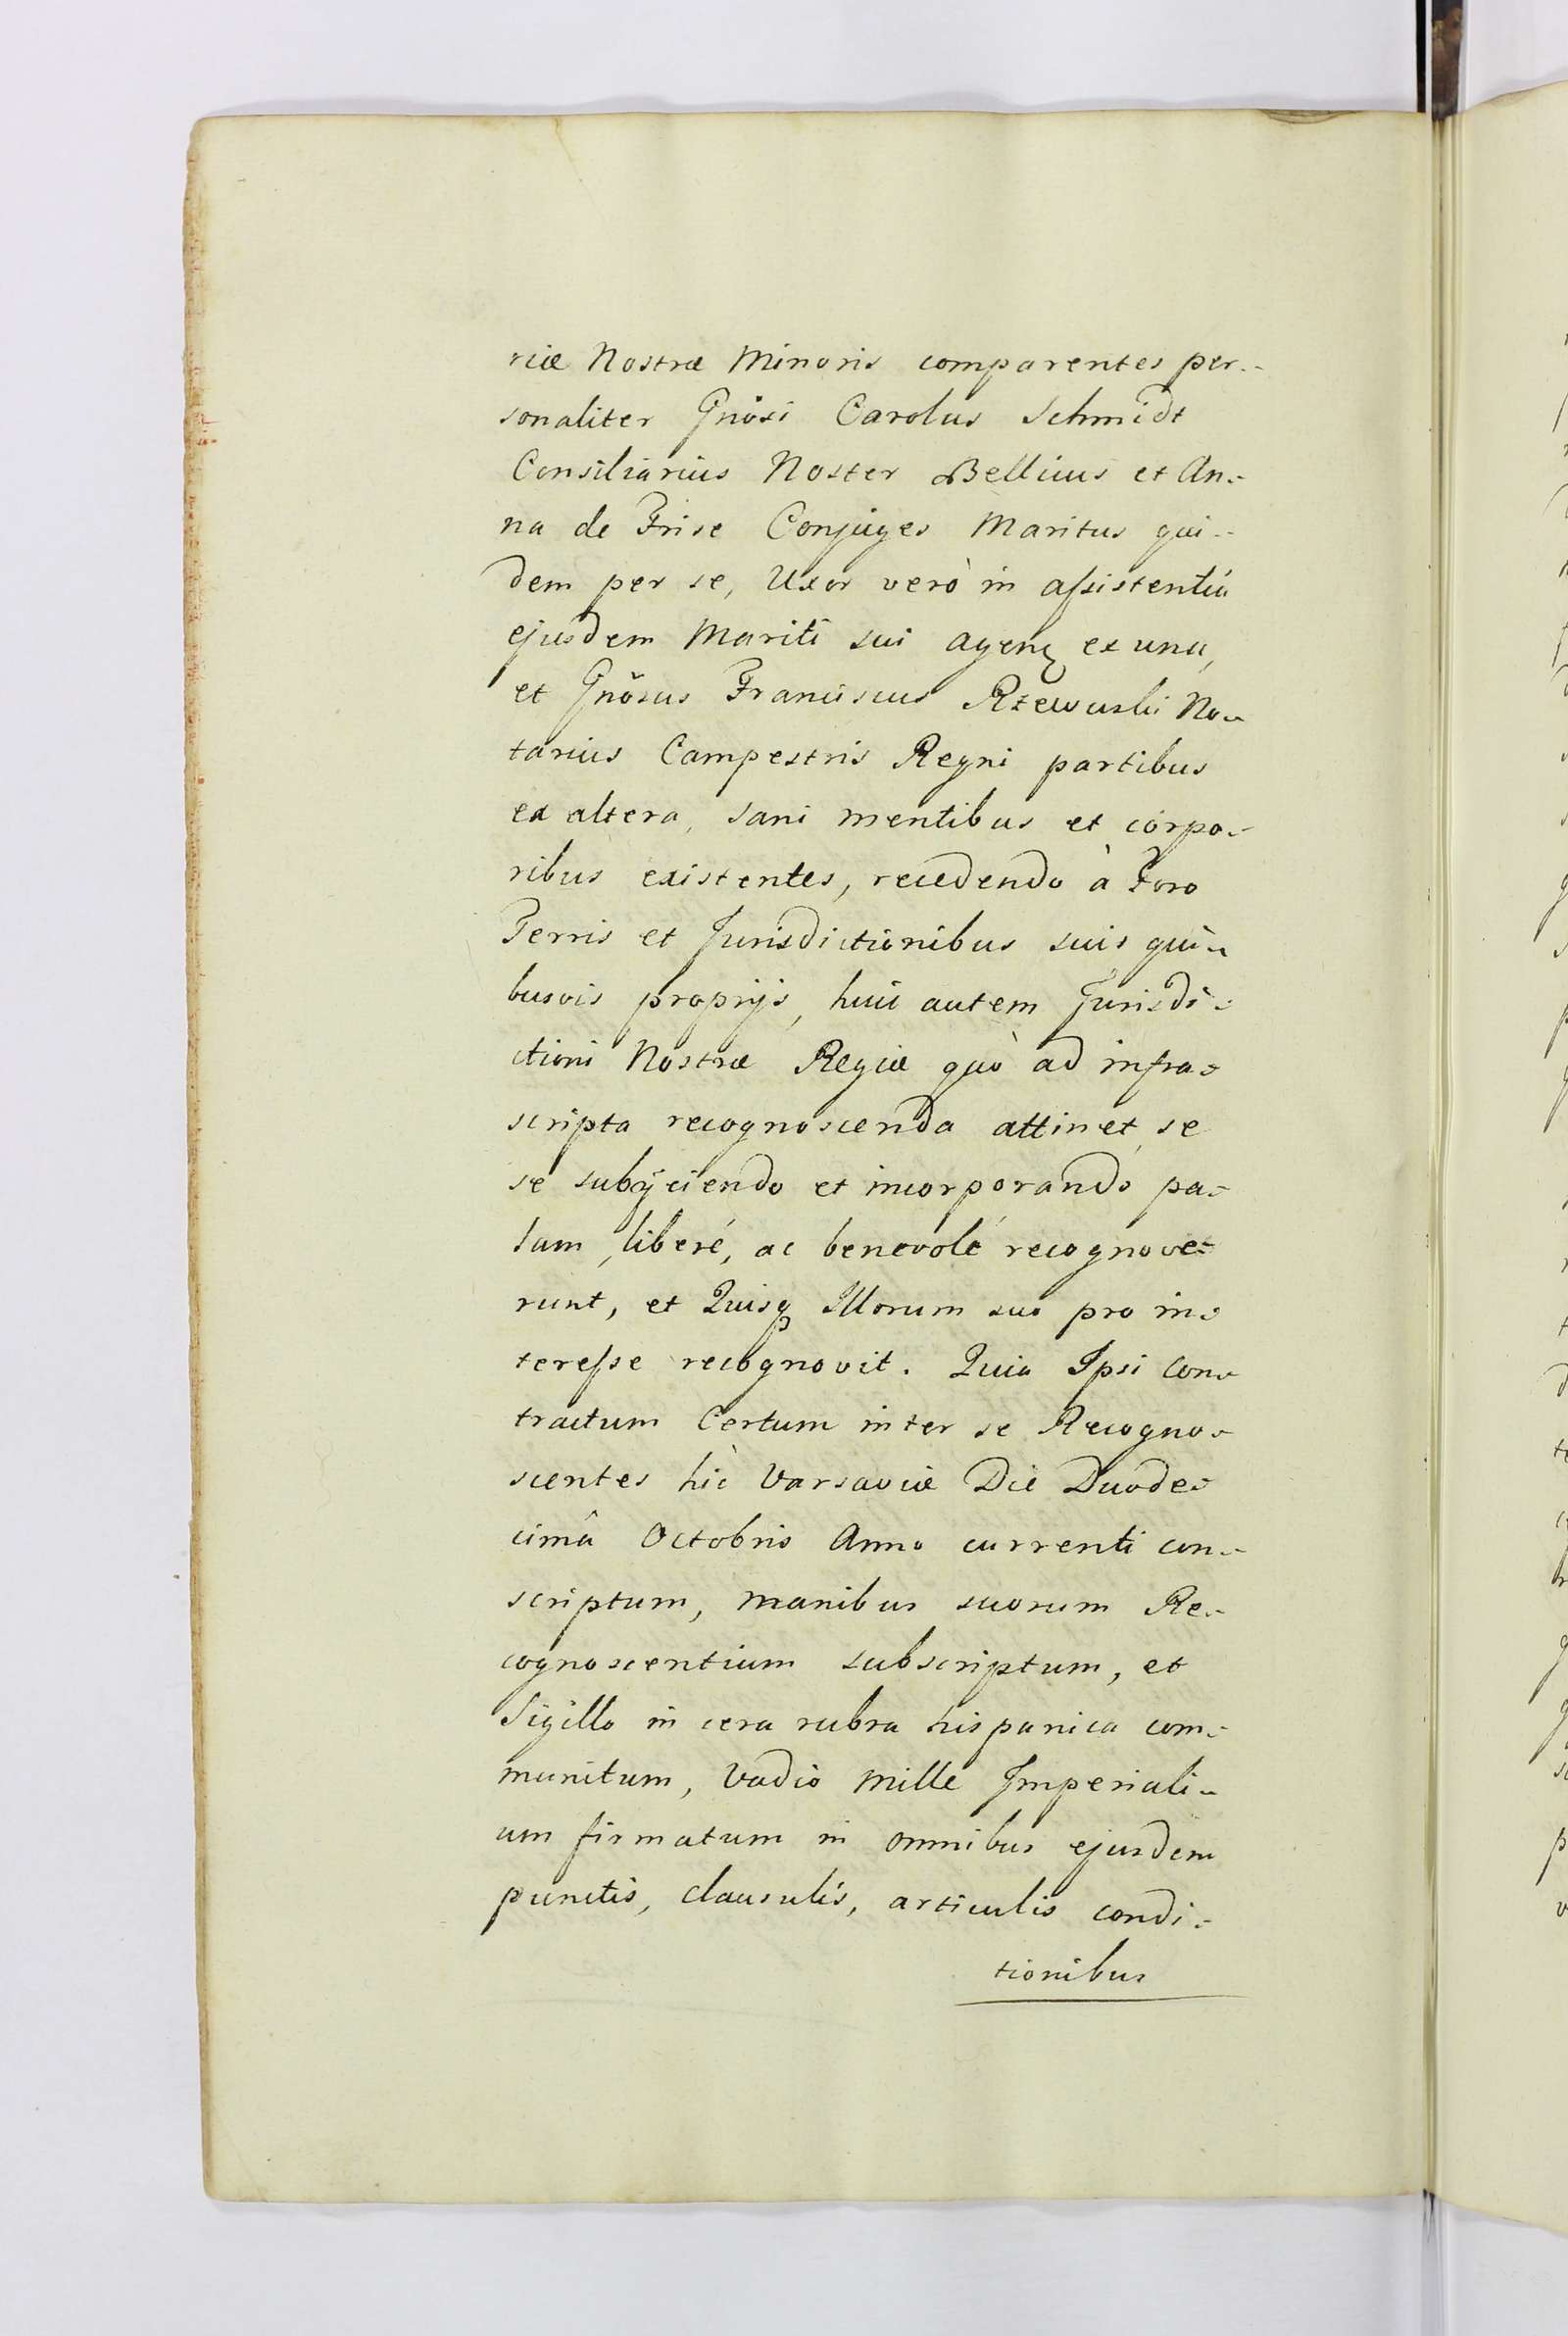 riæ Nostræ Minoris comparentes per-
sonaliter Gnõsi Carolus Schmidt
Consiliarius Noster Bellicus et An-
na de Frise Conjuges Maritus qui-
dem per se, Uxor verò in assistentiâ
ejusdem Mariti sui agens ex una,
et Gnõsus Franciscus Rzewuski No-
tarius Campestris Regni partibus
ex altera, sani mentibus et corpo-
ribus existentes, recedendo à Foro
Terris et Jurisdictionibus suis qui-
busvis proprijs, huic autem Jurisdi-
ctioni Nostræ Regiæ quò ad infra-
scripta recognoscenda attinet, se
se subijciendo et incorporando pa-
lam, liberé, ac benevolé recognove-
runt, et Quisq Illorum suo pro in-
teresse recognovit. Quia Ipsi Con-
tractum Certum inter se Recogno-
scentes hìc Varsaviæ Die Duode-
cimâ Octobris Anno currenti con-
scriptum, manibus suorum Re-
cognoscentium subscriptum, et
Sigillo in cera rubra hispanica com-
munitum, Vadio Mille Imperiali-
um firmatum in omnibus ejusdem
punctis, clausulis, articulis condi-
tionibus